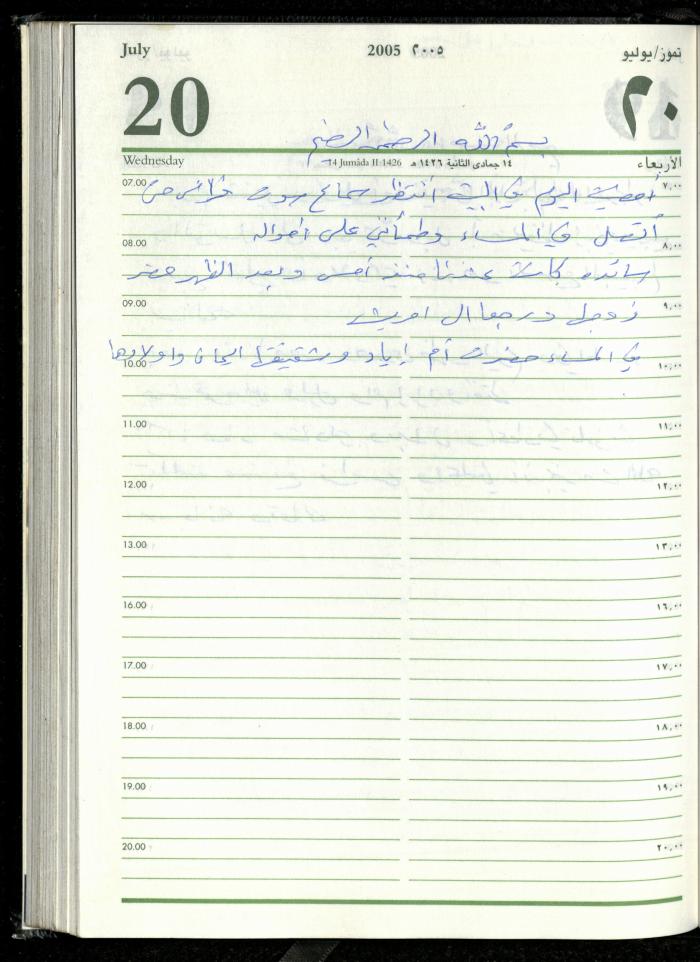 July 2005 ٢٠٠٥ تموز/يوليو
20 ٢٠
بسم الله الرحمن الرحيم
Wednesday 14 Jumâda II 1426 ١٤ جمادى الثانية ١٤٢٦ هـ الأربعاء
07.00 ٧,٠٠
أمضيت اليوم في البيت أنتظر سماع صوت فراس حتى
أتصل في المساء وطمأنني على أحواله
08.00 ٨,٠٠
كانت عندنا منذ أمس وبعد الظهر حضر
09.00 ٩,٠٠
زوجها ورجعا الى
في المساء حضرت أم إياد وشقيقتها ايمان واولادها
10.00 ١٠,٠٠
11.00 ١١,٠٠
12.00 ١٢,٠٠
13.00 ١٣,٠٠
16.00 ١٦,٠٠
17.00 ١٧,٠٠
18.00 ١٨,٠٠
19.00 ١٩,٠٠
20.00 ٢٠,٠٠